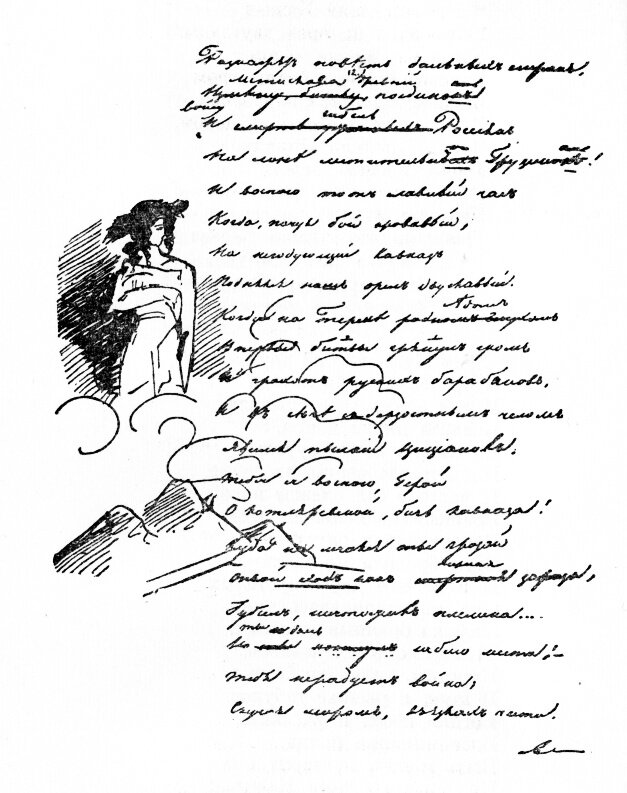 Разскажетъ повѣсть дальныхъ странъ,
Мстислава древній
битву, поединокъ
гибель
И смерть Россіянъ
На лонѣ мстительныхъ Грузинокъ!
И воспою тотъ славный часъ
Когда, почуя бой кровавый,
На негодующій Кавказъ
Поднялся нашъ орелъ двуглавый.
Когда на Терекѣ
Впервые битвы грянулъ громъ
И грохотъ русскихъ барабановъ,
И въ сѣчѣ съ дерзостнымъ челомъ
Явился пылкій Циціановъ;
Тебя я воспою, Герой
О Котляревскій, бичь Кавказа!
Куда ни мчался ты грозой
черная
Твой ходъ какъ зараза,
Губилъ, ничтожилъ племена...
ты
саблю мести;—
Тебя не радуетъ война;
миромъ, въ язвахъ чести.